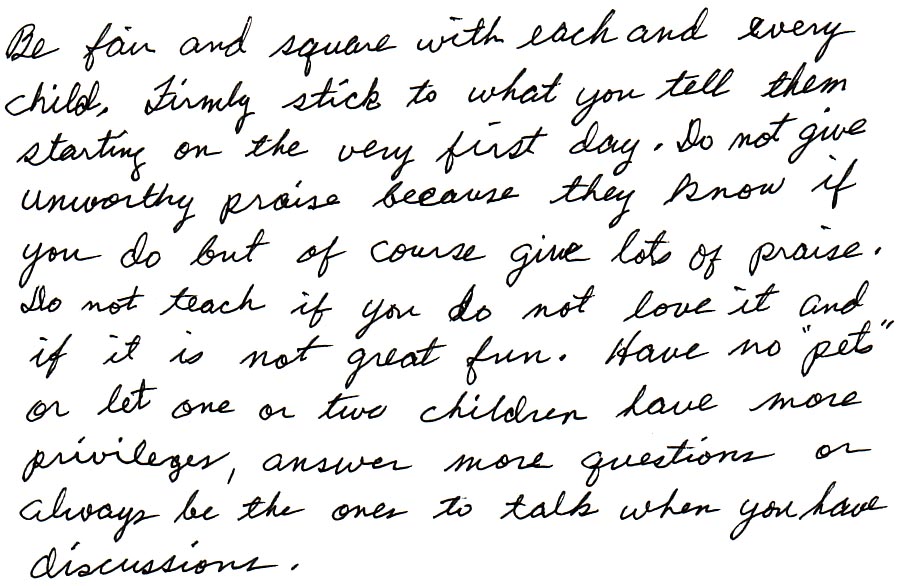 Be fair and square with each and every
child. Firmly stick to what you tell them
starting on the very first day. Do not give
unworthy praise because they know if
you do but of course give lots of praise.
Do not teach if you do not love it and
if it is not great fun. Have no "pets"
or let one or two children have more
privileges, answer more questions or
always be the ones to talk when you have
discussions.